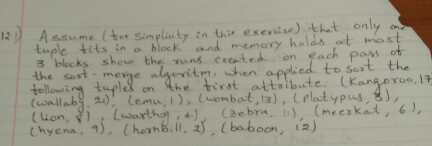 12:) Assume (for simplicity in this exercise) that only one
tuple fits in a block and memory holds at most
3 blocks. show the runs created on each pass of
the sort-merge algoritm, when applied to sort the
following tuples on the first attribute. (Kangoroo, 17
(wallaby 21), (emu, 1), (wombat, 13), (platypus, 3),
(lion, 8), (warthog, 4), (zebra, 11) (meerkat, 6),
(hyena, 9), (hornbill, 2), (baboon, 12)